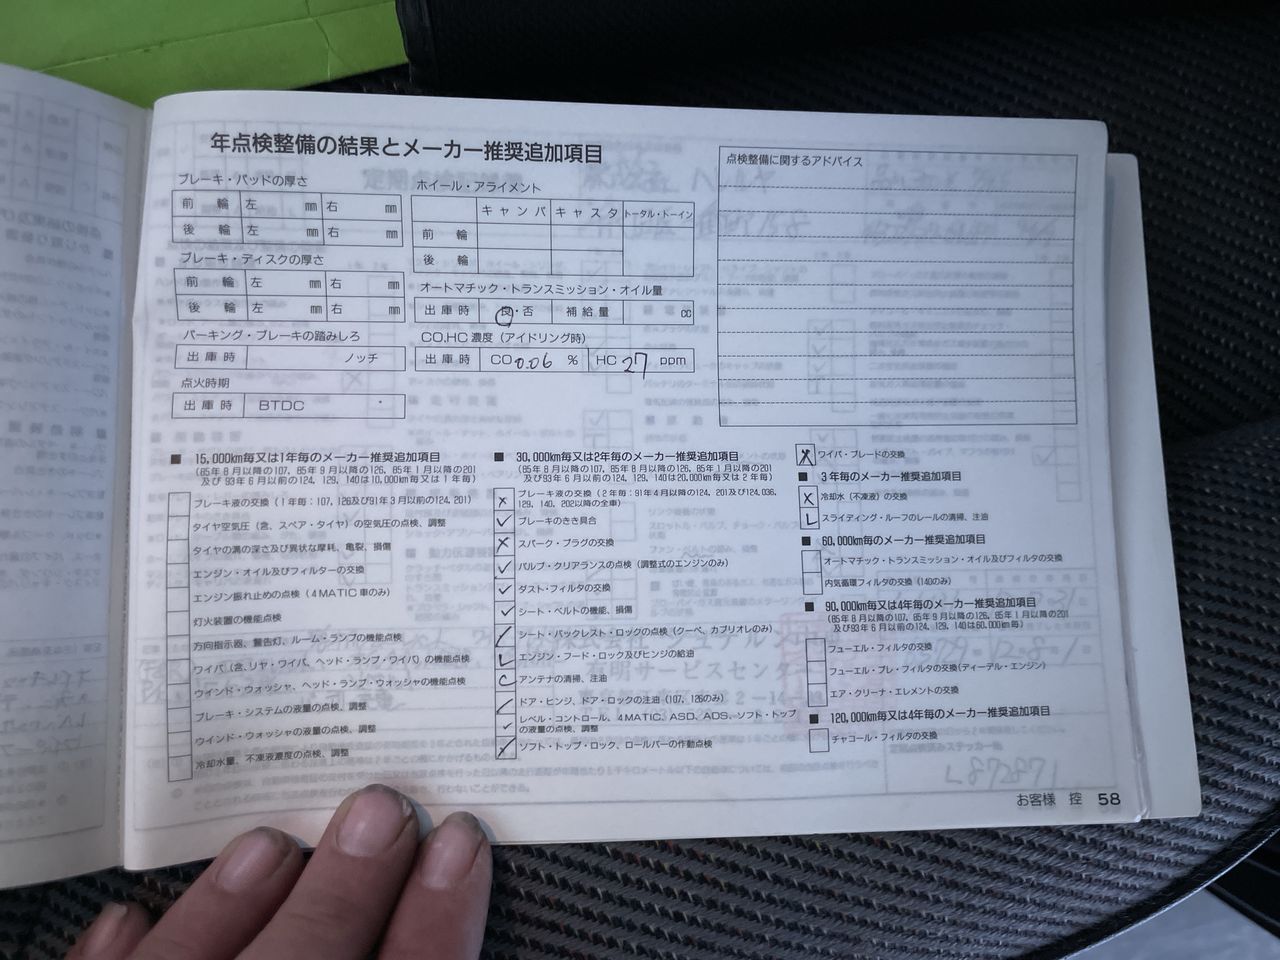 年点検整備の結果とメーカー推奨追加項目
ブレーキ・パッドの厚さ
前 輪 左 mm 右 mm
後 輪 左 mm 右 mm
ブレーキ・ディスクの厚さ
前 輪 左 mm 右 mm
後 輪 左 mm 右 mm
パーキング・ブレーキの踏みしろ
出庫時 ノッチ
点火時期
出庫時 BTDC °
ホイール・アライメント
キャンバ キャスタ トータル・トーイン
前 輪
後 輪
オートマチック・トランスミッション・オイル量
出庫時 良・否 補給量 cc
CO,HC濃度(アイドリング時)
出庫時 CO 0.06 % HC 27 ppm
点検整備に関するアドバイス
■ 15,000km毎又は1年毎のメーカー推奨追加項目
(85年8月以降の107, 85年9月以降の126, 85年1月以降の201
及び93年6月以前の124, 129, 140は10,000km毎又は1年毎)
ブレーキ液の交換(1年毎:107, 126及び91年3月以前の124, 201)
タイヤ空気圧(含、スペア・タイヤ)の空気圧の点検、調整
タイヤの溝の深さ及び異状な摩耗、亀裂、損傷
エンジン・オイル及びフィルターの交換
エンジン振れ止めの点検(4MATIC車のみ)
灯火装置の機能点検
方向指示器、警告灯、ルーム・ランプの機能点検
ワイパ(含、リヤ・ワイパ、ヘッド・ランプ・ワイパ)の機能点検
ウインド・ウォッシャ、ヘッド・ランプ・ウォッシャの機能点検
ブレーキ・システムの液量の点検、調整
ウインド・ウォッシャの液量の点検、調整
冷却水量、不凍液濃度の点検、調整
■ 30,000km毎又は2年毎のメーカー推奨追加項目
(85年8月以降の107, 85年9月以降の126, 85年1月以降の201
及び93年6月以前の124, 129, 140は20,000km毎又は2年毎)
× ブレーキ液の交換(2年毎:91年4月以降の124, 201及び124.036,
129, 140, 202以降の全車)
✓ ブレーキのきき具合
× スパーク・プラグの交換
✓ バルブ・クリアランスの点検(調整式のエンジンのみ)
✓ ダスト・フィルタの交換
✓ シート・ベルトの機能、損傷
/ シート・バックレスト・ロックの点検(クーペ、カブリオレのみ)
L エンジン・フード・ロック及びヒンジの給油
C アンテナの清掃、注油
/ ドア・ヒンジ、ドア・ロックの注油(107, 126のみ)
✓ レベル・コントロール、4MATIC, ASD, ADS, ソフト・トップ
の液量の点検、調整
ソフト・トップ・ロック、ロールバーの作動点検
× ワイパ・ブレードの交換
■ 3年毎のメーカー推奨追加項目
× 冷却水(不凍液)の交換
L スライディング・ルーフのレールの清掃、注油
■ 60,000km毎のメーカー推奨追加項目
オートマチック・トランスミッション・オイル及びフィルタの交換
内気循環フィルタの交換(140のみ)
■ 90,000km毎又は4年毎のメーカー推奨追加項目
(85年8月以降の107, 85年9月以降の126, 85年1月以降の201
及び93年6月以前の124, 129, 140は60,000km毎)
フューエル・フィルタの交換
フューエル・プレ・フィルタの交換(ディーデル・エンジン)
エア・クリーナ・エレメントの交換
■ 120,000km毎又は4年毎のメーカー推奨追加項目
チャコール・フィルタの交換
お客様 控 58